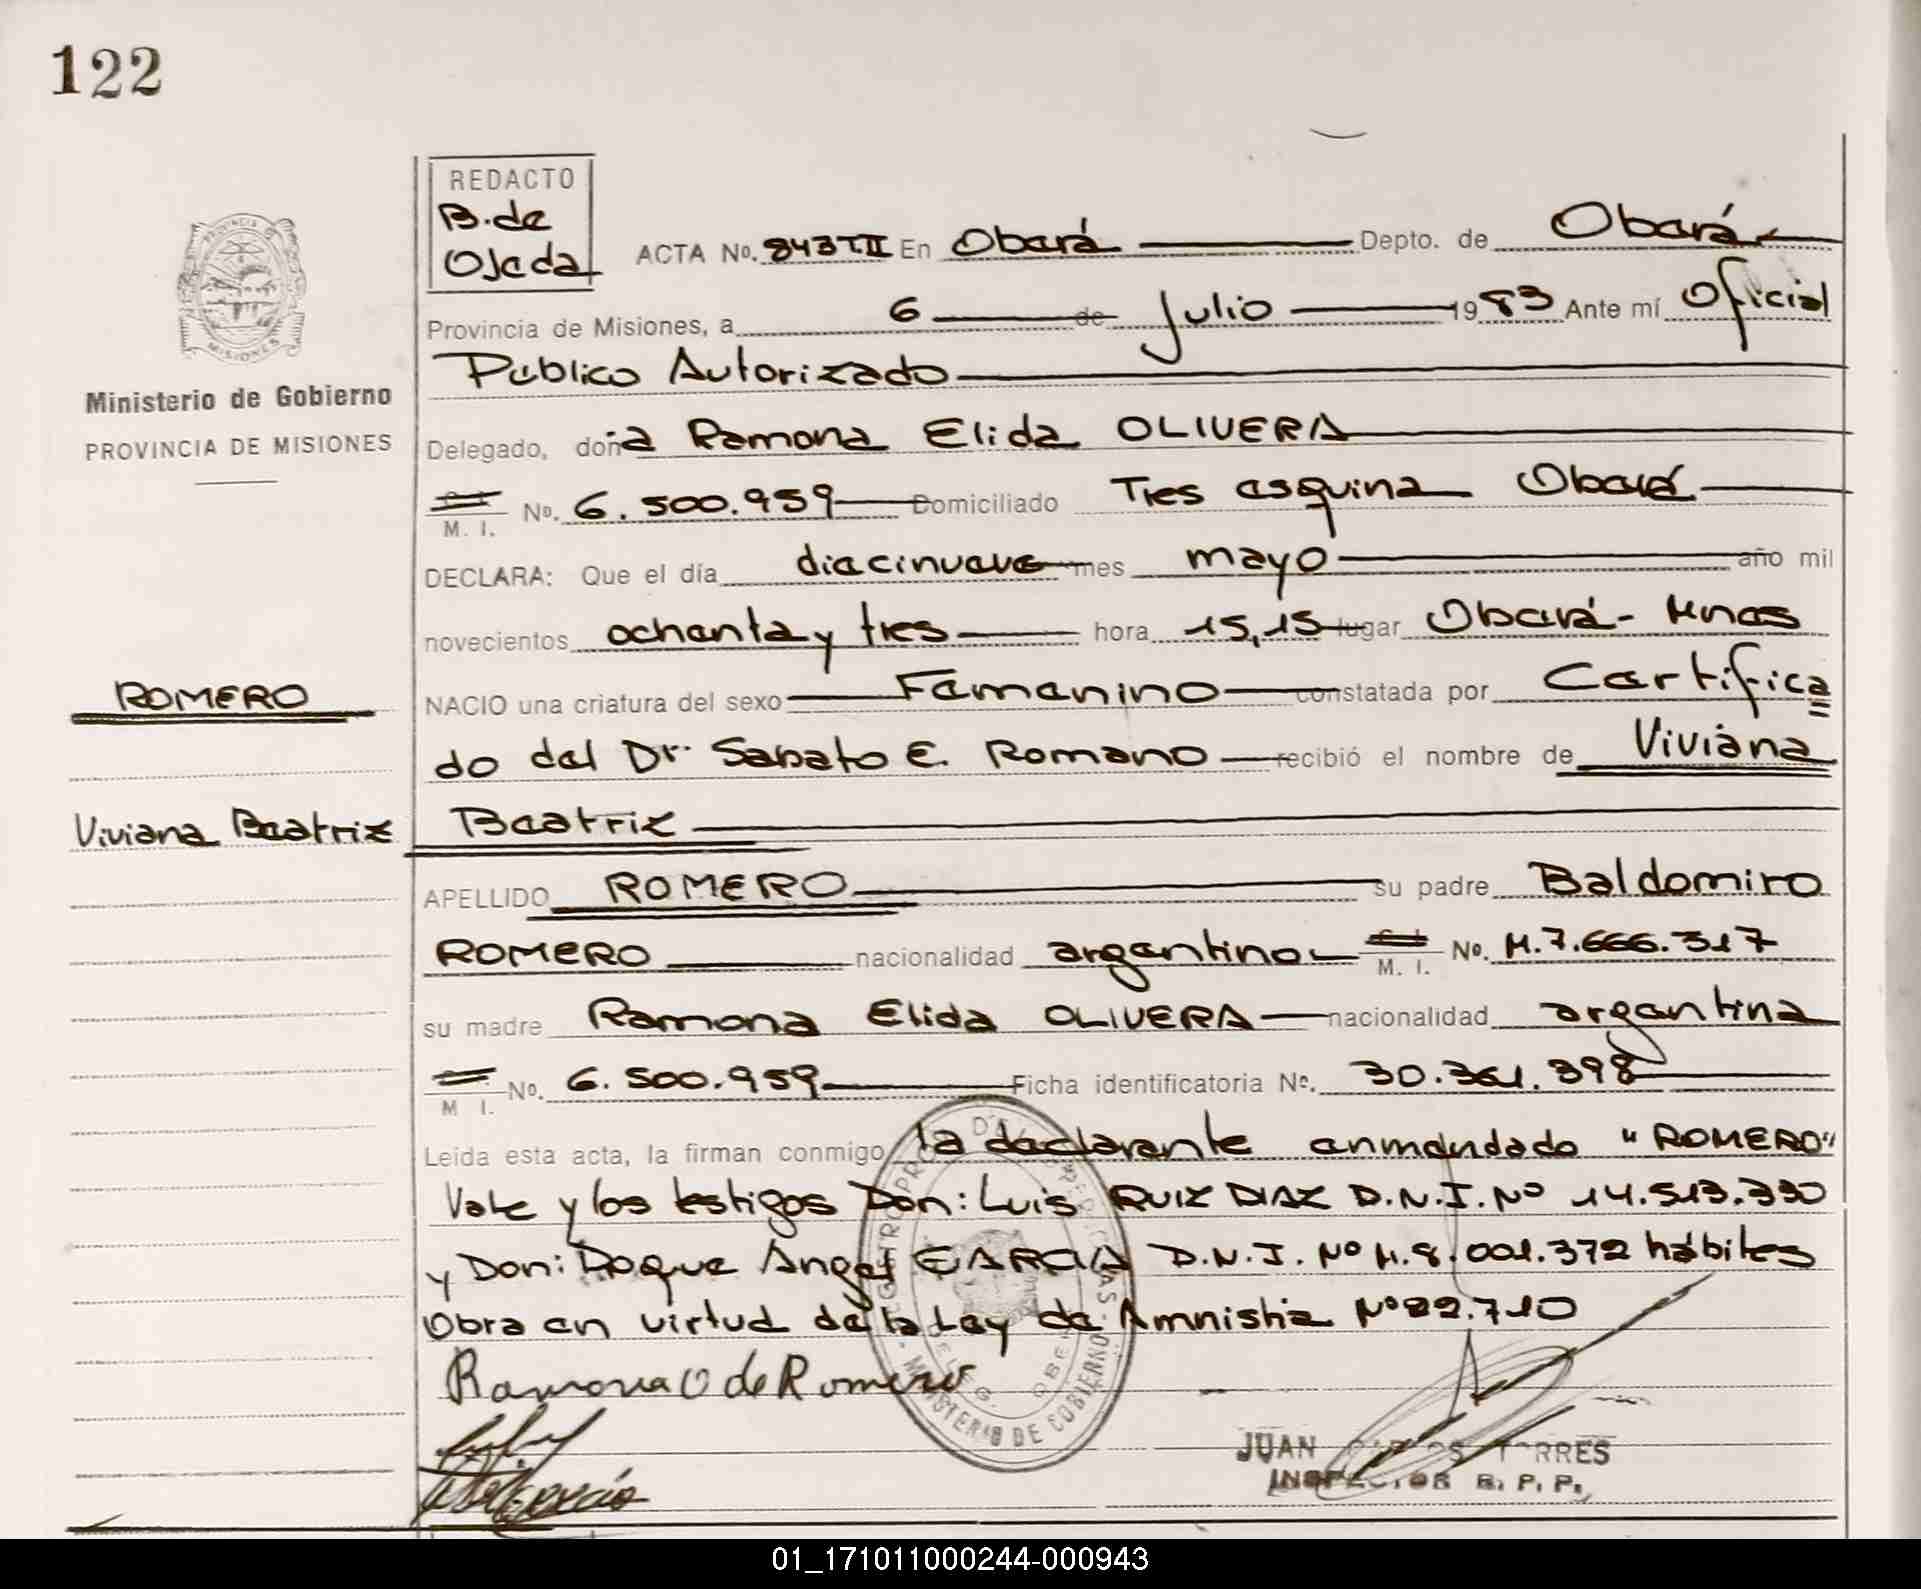 122
REDACTO
B. de
Ojeda
ACTA No. 843 T.II En Oberá Depto. de Oberá
Provincia de Misiones, a 6 de Julio 1983 Ante mí Oficial
Publico Autorizado
Ministerio de Gobierno
PROVINCIA DE MISIONES
Delegado, doña Ramona Elida OLIVERA
M. I. No. 6.500.959 Domiciliado Tres esquina Oberá
DECLARA: Que el día diecinueve mes mayo año mil
novecientos ochenta y tres hora 15,15 lugar Oberá - Mnes
ROMERO
NACIO una criatura del sexo Femenino constatada por Certifica
do del Dr. Sabato E. Romano recibió el nombre de Viviana
Viviana Beatriz
Beatriz
APELLIDO ROMERO su padre Baldomiro
ROMERO nacionalidad argentino M. I. No. M.7.666.317
su madre Ramona Elida OLIVERA nacionalidad argentina
M I. No. 6.500.959 Ficha identificatoria No. 30.361.398
Leida esta acta, la firman conmigo la declarante enmendado "ROMERO"
Vale y los testigos Don: Luis RUIZ DIAZ D.N.I. No 14.513.330
y Don: Roque Angel GARCIA D.N.I. No M.8.001.372 hábiles
Obra en virtud de la Ley de Amnistia No 22.710
Ramona O de Romero
MINISTERIO DE GOBIERNO
JUAN CARLOS TORRES
INSPECTOR R. P. P.
PROVINCIA DE
MISIONES
01_171011000244-000943